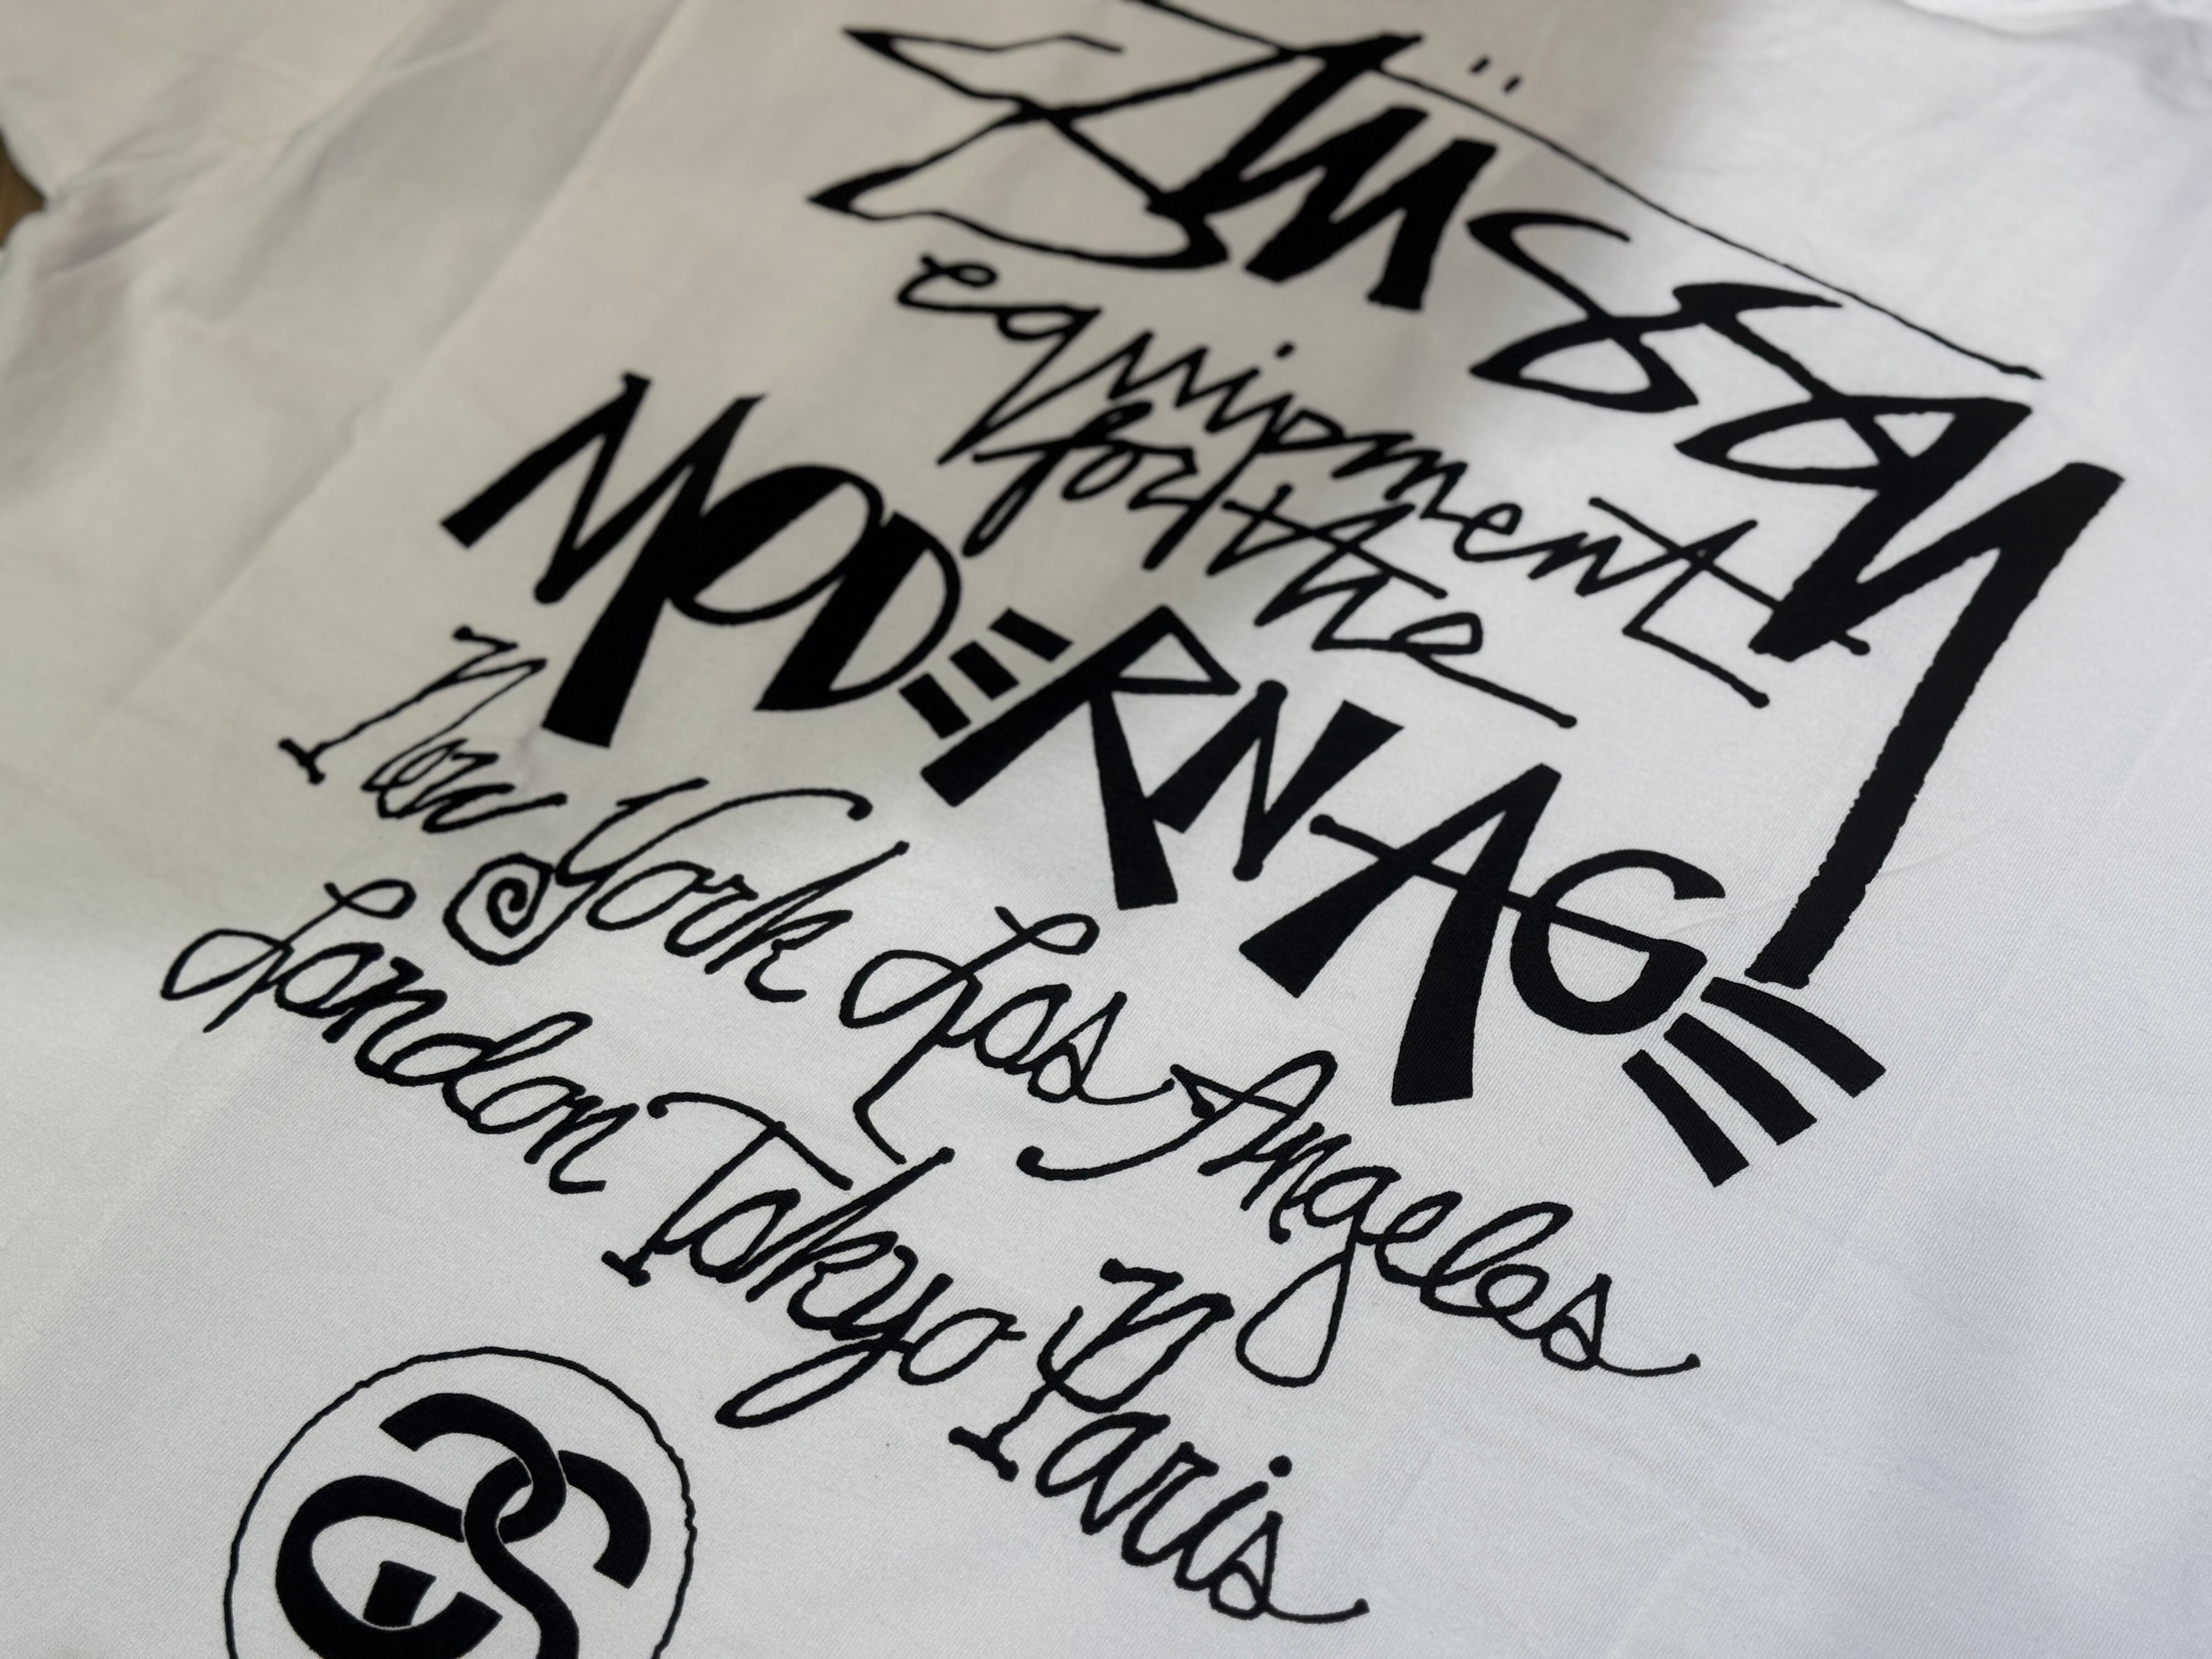 Stüssy
equipment
for the
MODERN AGE
New York Los Angeles
London Tokyo Paris